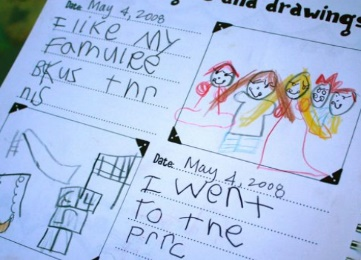 and drawings
Date: May 4, 2008
I like My
Famulee
BKus thr
nis
Date: May 4, 2008
I went
To the
Prrc